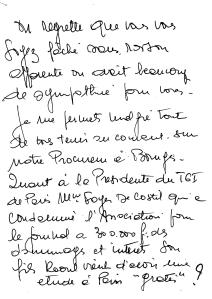 On regrette que vous vous
soyez fâché sans raison
apparente on avait beaucoup
de sympathie pour vous.
Je me permets malgré tout
de vous tenir au courant sur
notre Procureur à Bourges.
Quant à la Présidente du TGI
de Paris Mme qui a
condamné l'Association pour
le journal à 300.000 f. de
dommages et intérêt son
fils vient d'avoir une
étude à Paris "gratis" ?